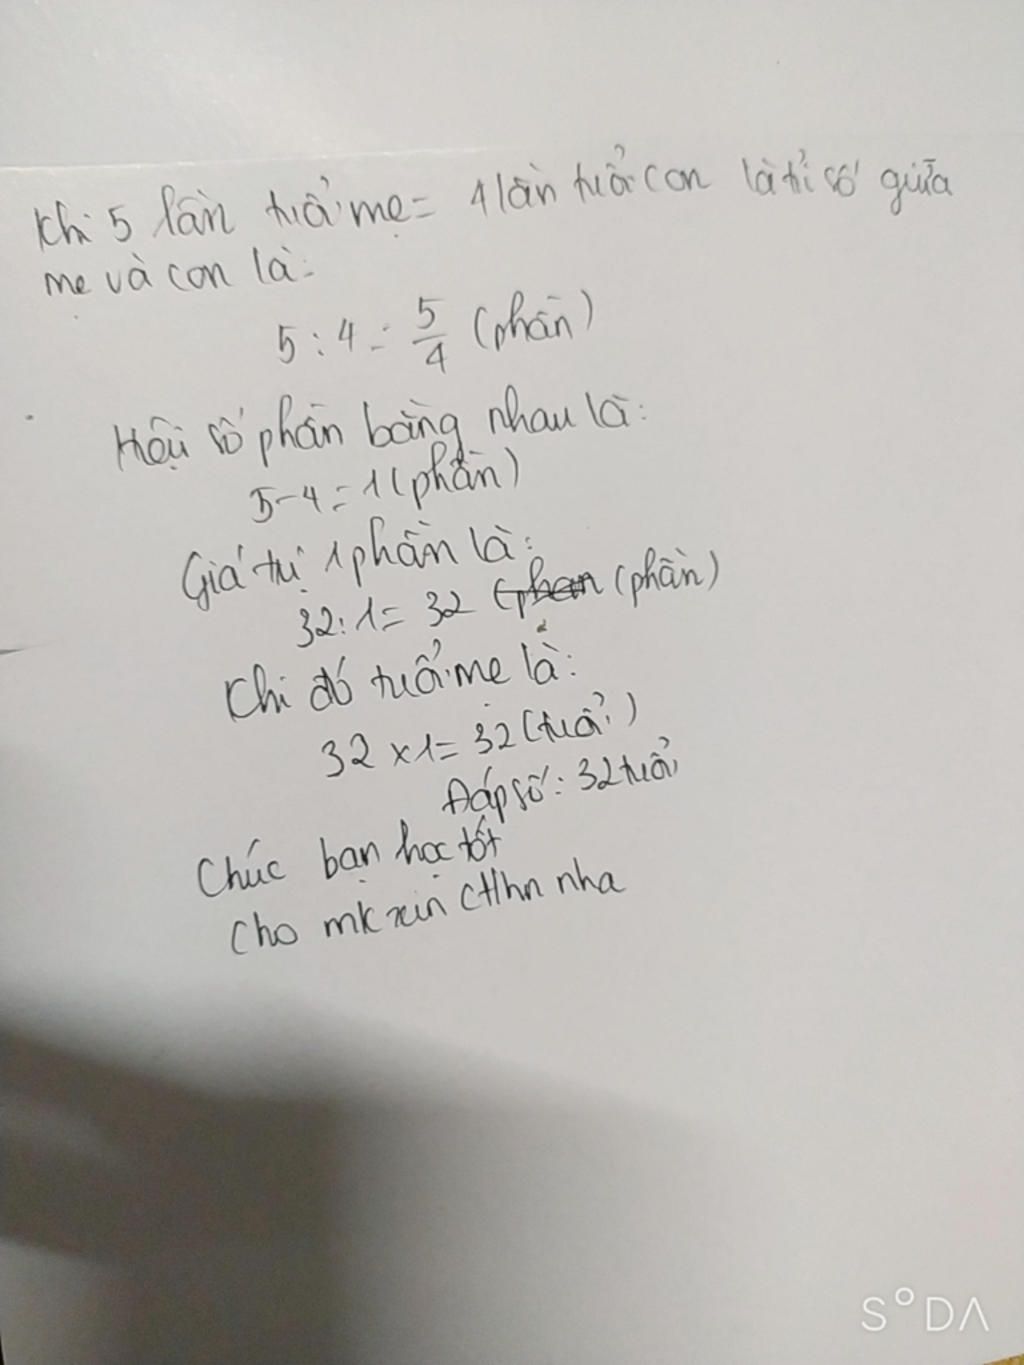 Khi 5 lần tuổi mẹ = 4 lần tuổi con là tỉ số giữa
mẹ và con là:
5 : 4 = 5/4 (phần)
Hiệu số phần bằng nhau là:
5 - 4 = 1 (phần)
Giá trị 1 phần là:
32 : 1 = 32 (phan (phần)
Khi đó tuổi mẹ là:
32 x 1 = 32 (tuổi)
Đáp số: 32 tuổi
Chúc bạn học tốt
Cho mk xin ctlhn nha
S°DA